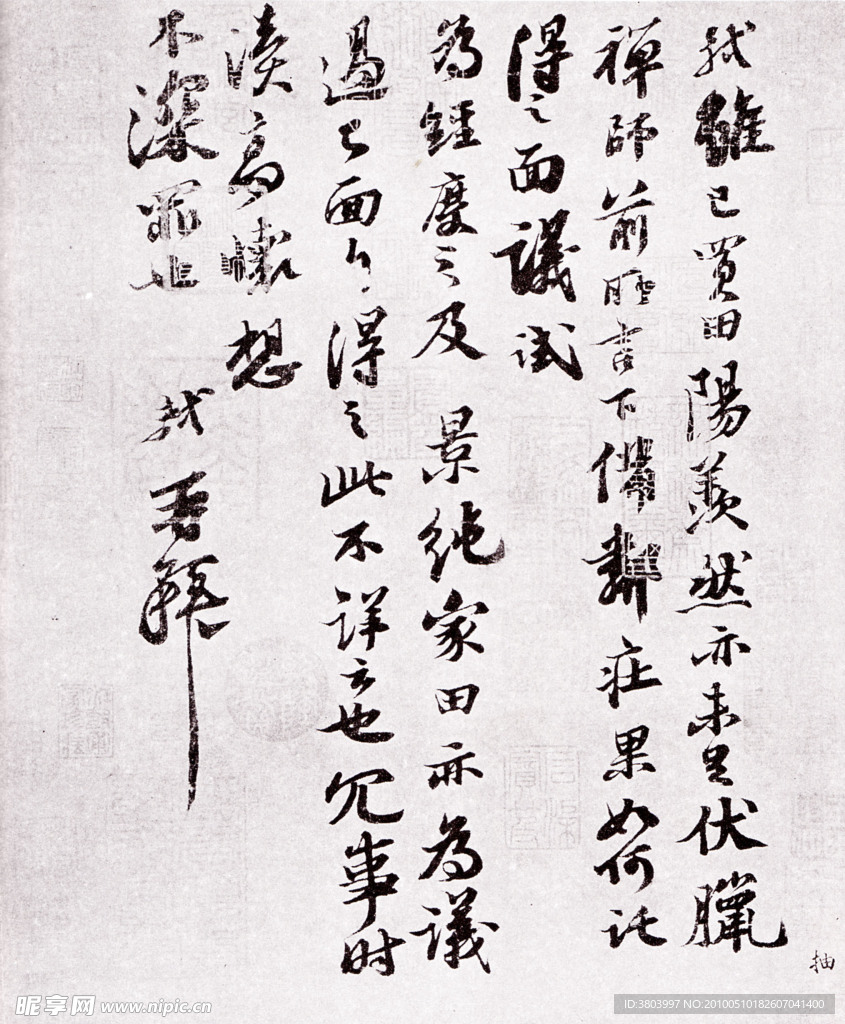 軾雖已買田陽羨然亦未足伏臘
禪師前所言下備鄰莊果如何託
得之面議試
為經度之及景純家田亦為議
過已面白得之此不詳云也冗事时
瀆高懷想
不深罪也 軾再拜
抽
昵享网 www.nipic.cn
ID:3803997 NO:20100510182607041400